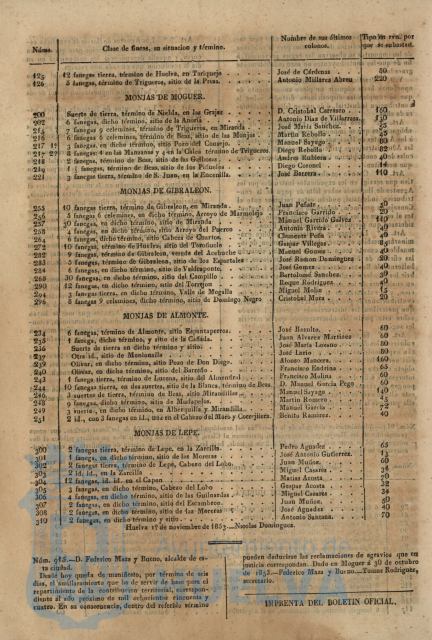 Núms. Clase de fincas, su situacion y término. Nombre de sus últimos colonos. Tipo en rvn. por que se subastan.
125 12 fanegas tierra, término de Huelva, en Tariquejo José de Cárdenas 50
126 5 fanegas, término de Trigueros, sitio de la Presa. Antonio Millares Abreu 220
MONJAS DE MOGUER.
200 Suerte de tierra, término de Niebla, en las Grajas D. Cristobal Carrasco 160
202 6 fanegas, dicho término, sitio de la Anoria Antonio Diaz de Villarrasa
214 7 fanegas 9 celemines, término de Trigueros, en Miranda José María Sanchez.
216 2 fanegas 6 celemines, término de Beas, sitio de las Monjas Martin Rebollo
217 3 fanegas, en dicho término, sitio Pozo del Consejo. Manuel Bayago 80
217 8 fanegas: 4 en las Marazas y 4 en la Calera término de Trigueros. Diego Rebollo 82
218 2 fanegas, término de Beas, sitio de los Gallonas Andres Rubiera 40
219 fanegas, término de Beas, sitio de los Palmares Diego Coronel
221 3 fanegas tierra, término de S. Juan, en la Encenilla. José Barrera 110
MONJAS DE GIBRALEON.
255 10 fanegas tierra, término de Gibraleon, en Miranda Juan Peñate
256 5 fanegas 6 celemines, en dicho término, Arroyo de Marmolejo Francisco Garrido 20
257 30 fanegas, en dicho término, sitio de Miranda Manuel Garrido Galvez
258 4 fanegas, en dicho término, sitio Arroyo del Puerco Antonio Rivera
264 6 fanegas, dicho término, sitio Cabeza de Cuartos Clemente Peña
272 10 fanegas, término de Huelva, sitio del Tomfuelo Gaspar Villegas
282 9 fanegas, término de Gibraleon, vereda del Acebuche Manuel Gomez
283 3 fanegas, término de Gibraleon, sitio de los Espartales José Ramon Dominguez 20
284 6 fanegas, en dicho término, sitio de Valdeaponte. José Gomez
288 30 fanegas, en dicho término, sitio del Campillo Bartolomé Sanchez
290 12 fanegas, en dicho término, sitio del Torrejon Roque Rodriguez
294 3 fanegas tierra, en dicho término, Valle de Magalla Miguel Molin
296 8 fanegas 9 celemines, dicho término, sitio de Domingo Negro Cristobal Mora 20
MONJAS DE ALMONTE.
234 6 fanegas, término de Almonte, sitio Espantaperros. José Basulto. 60
235 1 fanega, dicho término, sitio y de la Cañada. Juan Alvarez Martinez
236 Suerte de tierra en dicho término y sitio José María Lozano 80
237 Otra id., sitio de Montanilla José Lario 80
239 Olivar, en dicho término, sitio Pozo de Don Diego. Alonso Moncera 160
240 Olivar, en dicho término, sitio del Barreño Francisco Endrina 65
243 1 fanega tierra, término de Lucena, sitio del Almendral Francisco Molina 60
244 10 fanegas tierra, en dos suertes, sitio de la Blanca, término de Beas D. Manuel García Pego 60
246 3 suertes de tierra, término de Beas, sitio Mirandillas Manuel Bayago 140
248 9 fanegas, dicho término, sitio de Marlapelos. Martin Romero 45
249 3 suertes, en dicho término, en Alberquilla y Mirandilla Manuel García 72
251 2 id., con 3 fanegas en id., una en el Cabezo del Maes y Correjiera. Benito Ramirez 40
MONJAS DE LEPE.
300 2 fanegas tierra, término de Lepe, en la Zarcilla. Pedro Aguadez 65
301 1 fanega, en dicho término, sitio de las Moreras José Antonio Gutierrez. 15
302 2 fanegas tierra, término de Lepe, Cabezo del Lobo Juan Muñoz. 60
303 2 id. id., en la Zarcilla Miguel Casares 38
304 12 fanegas, id. id. en el Capon Matias Acosta 50
305 3 fanegas, en dicho término, Cabezo del Lobo Gaspar Acosta 32
306 4 fanegas, en dicho término, sitio de las Guiluardas Miguel Casares 34
307 2 fanegas, en dicho término, sitio del Escambron. Juan Muñoz. 50
308 2 fanegas, en dicho término, sitio de las Moreras José Aguadez 40
310 2 fanegas, dicho término y sitio Antonio Santana. 70
Huelva 17 de noviembre de 1853.—Nicolas Dominguez.
Núm. 915.—D. Federico Maza y Bueno, alcalde de es-
ta ciudad.
Desde hoy queda de manifiesto, por término de seis
dias, el amillaramiento que ha de servir de base para el
repartimiento de la contribucion territorial, correspon-
diente al año próximo de mil ochocientos cincuenta y
cuatro. En su consecuencia, dentro del referido término
pueden deducirse las reclamaciones de agravios que en
justicia correspondan. Dado en Moguer á 30 de octubre
de 1853.—Federico Maza y Bueno.—Tomas Rodriguez,
secretario.
IMPRENTA DEL BOLETIN OFICIAL.